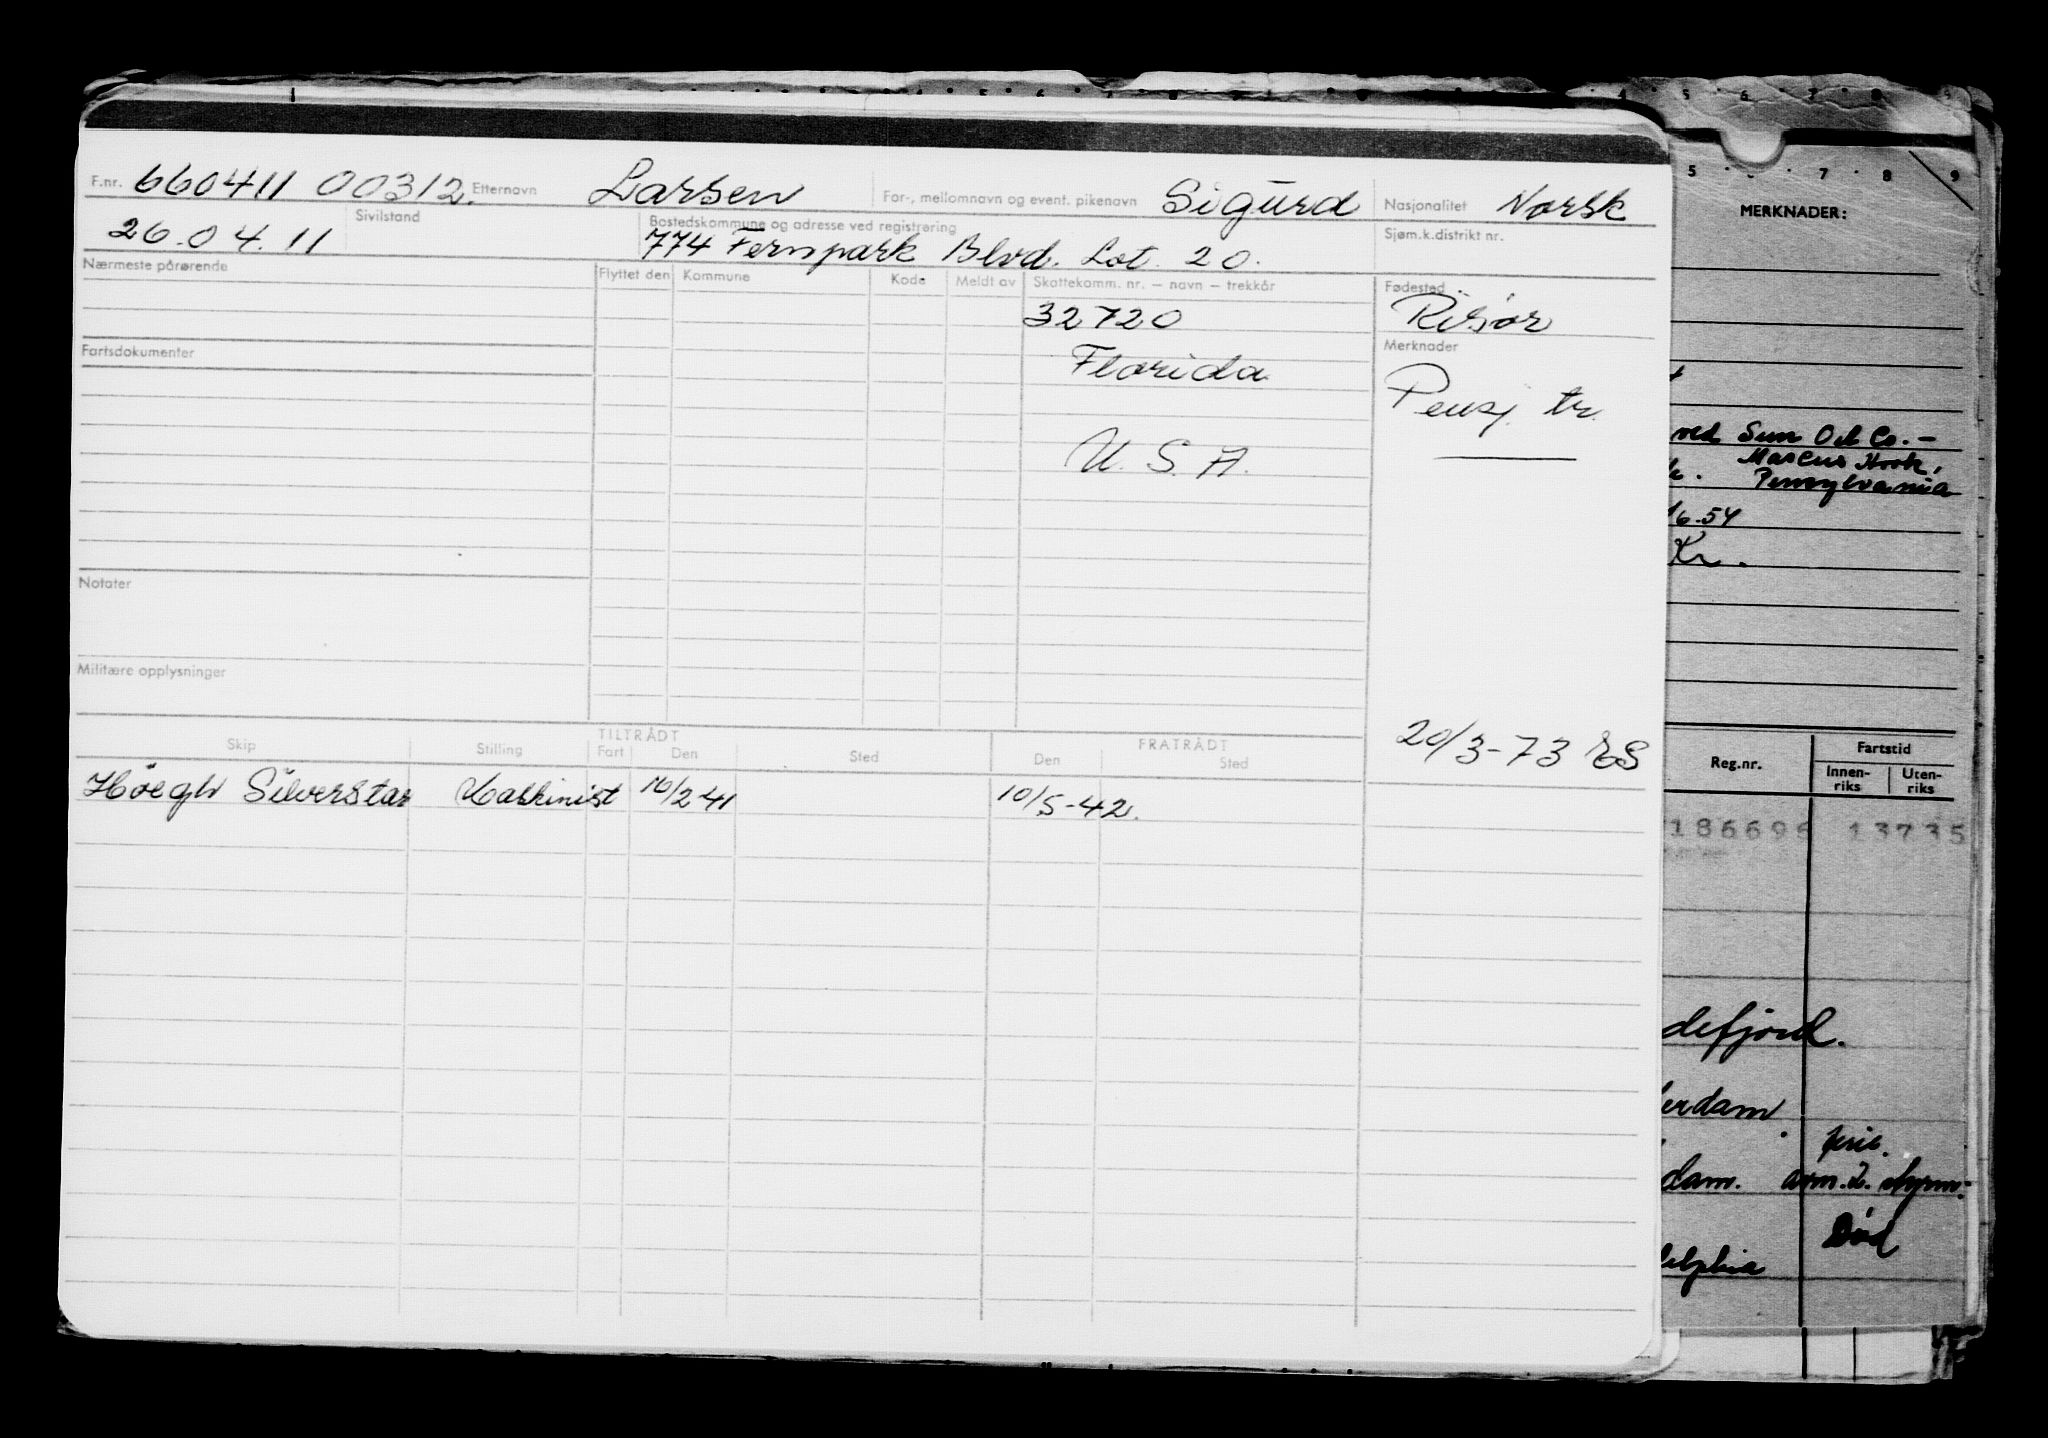 F.nr. 660411 00312. Etternavn Larsen For-, mellomnavn og event. pikenavn Sigurd Nasjonalitet Norsk
26.04.11 Sivilstand Bostedskommune og adresse ved registrering Sjøm.k.distrikt nr.
774 Fernpark Blvd. Lot. 20.
Nærmeste pårørende Flyttet den Kommune Kode Meldt av Skattekomm. nr. – navn – trekkår Fødested
32720 Risör
Fartsdokumenter Merknader
Florida
Pensj. tr.
U. S. A.
Notater
Militære opplysninger
20/3-73
TILTRÅDT FRATRÅDT
Skip Stilling Fart Den Sted Den Sted
Höegh Silverstar Maskinist 16/2 41 10/5-42.
4 5 6 7 8 9
5 7 8 9
MERKNADER:
ved Sun Oil Co. –
Marcus Hook,
Pensylvania
6.54
Kr.
Reg.nr. Fartstid
Innen-riks Uten-riks
186696 13735
defjord.
erdam
dam.
Död
delphia